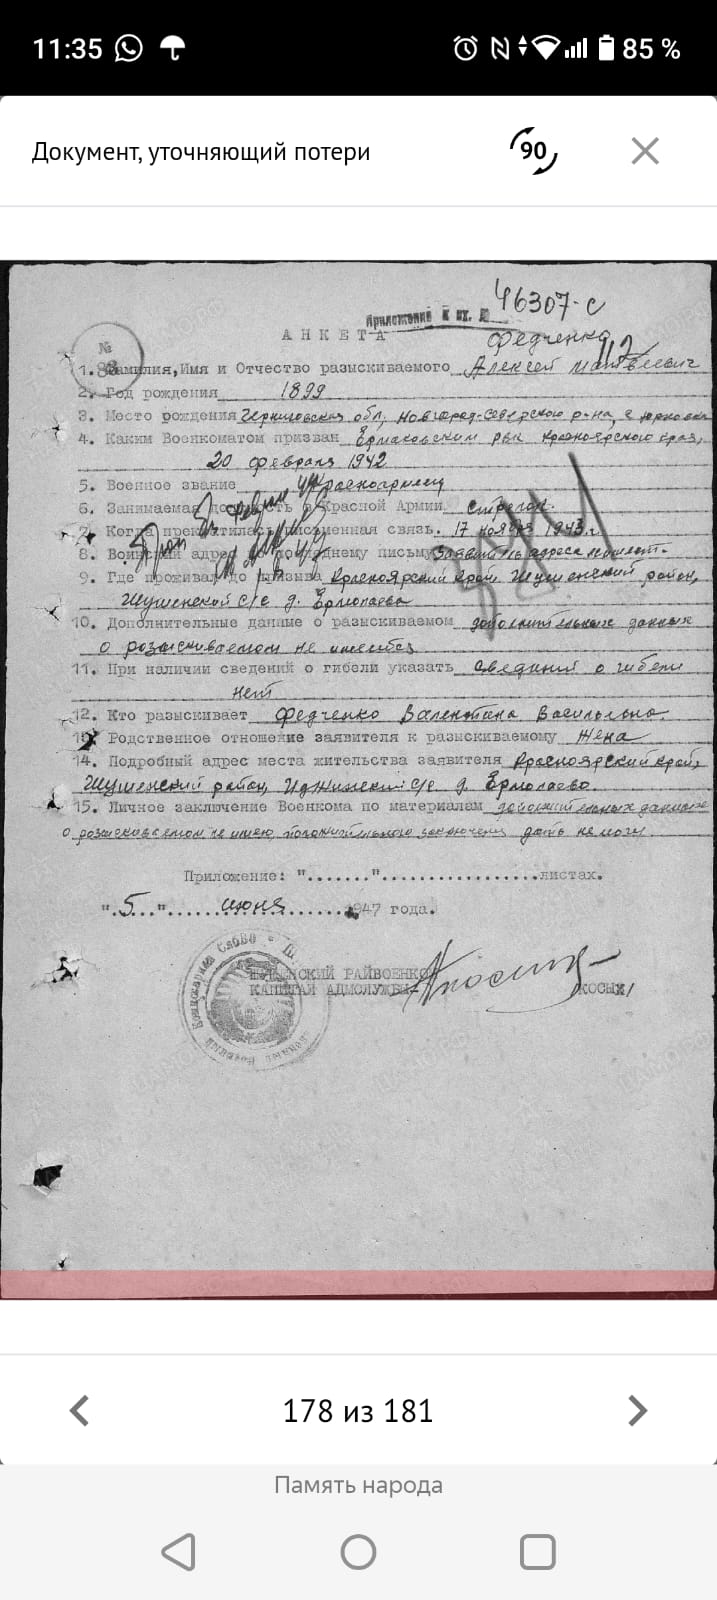 11:35
85 %
Документ, уточняющий потери
90
46307-с
Приложение к вх. №
АНКЕТА
Федченко
№
1. Фамилия, Имя и Отчество разыскиваемого Алексей Матвеевич
2. Год рождения 1899
3. Место рождения Черниговская обл, Новгород-Северского р-на, с
4. Каким Военкоматом призван Ермаковским рвк Красноярского края,
20 февраля 1942
5. Военное звание Красноармеец
6. Занимаемая должность в Красной Армии. Стрелок.
7. Когда прекратилась письменная связь. 17 ноября 1943 г
8. Воинский адрес по последнему письму Заявитель адреса не имеет.
9. Где проживал до призыва Красноярский край, Шушенский район,
Шушенской с/с д. Ермолаева
10. Дополнительные данные о разыскиваемом дополнительных данных
о розыскиваемом не имеется
11. При наличии сведений о гибели указать сведений о гибели
нет
12. Кто разыскивает Федченко Валентина Васильевна.
13. Родственное отношение заявителя к разыскиваемому Жена
14. Подробный адрес места жительства заявителя Красноярский край,
Шушенский район, Иджинский с/с д. Ермолаево.
15. Личное заключение Военкома по материалам дополнительных данных
о розыскиваемом не имею, положительного заключения дать не могу
Приложение: "......."..................листах.
"5" июня 1947 года.
ШУШЕНСКИЙ РАЙВОЕНКОМ
КАПИТАН АДМСЛУЖБЫ- /КОСЫХ/
178 из 181
Память народа